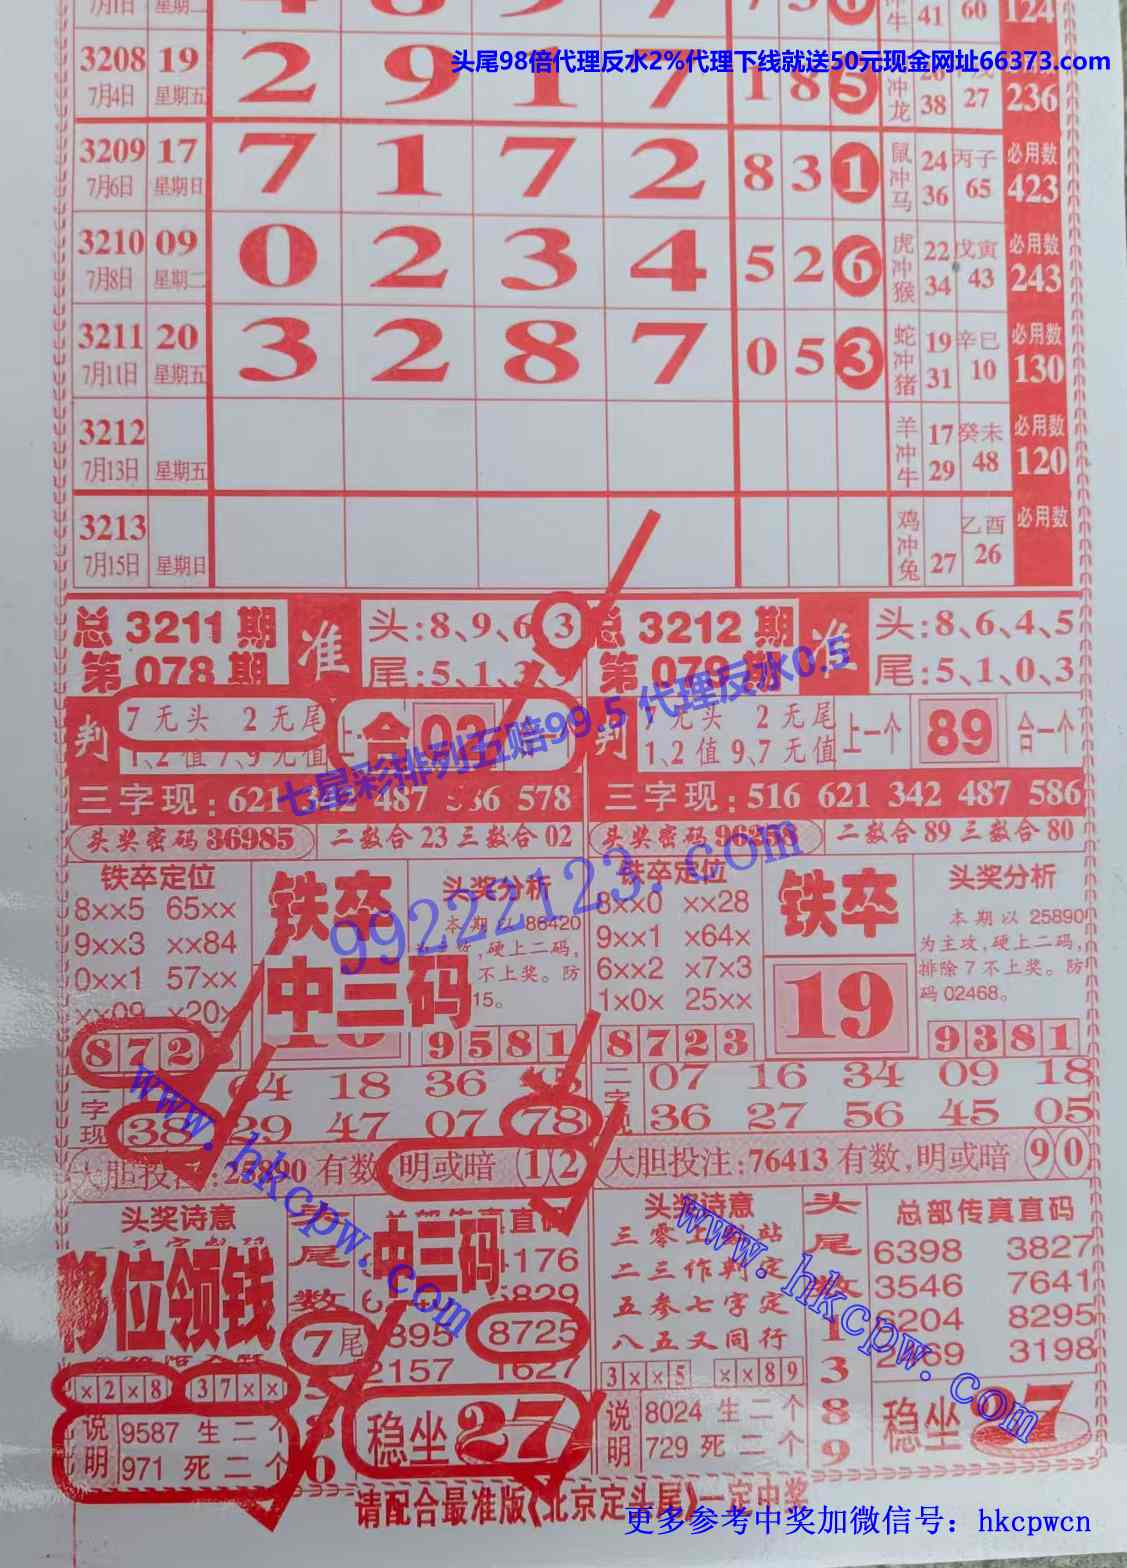 头尾98倍代理反水2%代理下线就送50元现金网址66373.com
7月1日 星期二 4 8 9 7 7 3 6 冲牛 41 60 124
3208 19 2 9 1 7 1 8 5 236
7月4日 星期五 冲龙 38 27
3209 17 7 1 7 2 8 3 1 鼠冲马 24 丙子 必用数
7月6日 星期日 36 65 423
3210 09 0 2 3 4 5 2 6 虎冲猴 22 戊寅 必用数
7月8日 星期二 34 43 243
3211 20 3 2 8 7 0 5 3 蛇冲猪 19 辛巳 必用数
7月11日 星期五 31 10 130
3212 羊冲牛 17 癸未 必用数
7月13日 星期五 29 48 120
3213 鸡冲兔 乙酉 必用数
7月15日 星期日 27 26
总3211期 准 头:8、9、6、3
第078期 尾:5、1、3、
判 7无头 2无尾 合
1、2值7、9无值
三字现:621 487 578
头奖密码36985 二数合23三数合02
铁卒定位 铁卒 头奖分析
8××5 65×× 本期以88420
9××3 ××84 硬上二码,
0××1 57×× 中三码 不上奖。防
××09 ×20× 15。
872 9581
二字现 04 18 36
38 29 47 07 78
大胆投注:25890有数 明或暗12
头奖诗意 中三码
移位领钱 尾数 176
829
7尾 895 8725
×2×8 37×× 2157 1627
说明 9587 生二个 稳坐27
971 死二个 0
总3212期 准 头:8、6、4、5
第079期 尾:5、1、0、3
判 7无头 2无尾 上一个 89 合一个
1、2值9、7无值
三字现:516 621 342 487 586
头奖密码 二数合89三数合80
铁卒定位 铁卒 头奖分析
8××0 ××28 本期以25890
9××1 ×64× 为主攻,硬上二码,
6××2 ×7×3 19 排除7不上奖。防
1×0× 25×× 码02468。
8723 9381
07 16 34 09 18
36 27 56 45 05
大胆投注:76413有数,明或暗90
头奖诗意 头尾 总部传真直码
三零 站 6398 3827
二三作判定 3546 7641
五参七字定 1 6204 8295
八五又同行 69 3198
3××5 ××89 3
说明 8024 生二个 8 稳坐27
729 死二个 9
请配合最准版《北京定头尾》一定中奖
七星彩排列五赔99.5 代理反水0.5
99222123.com
www.hkcpw.com
www.hkcpw.com
更多参考中奖加微信号：hkcpwcn